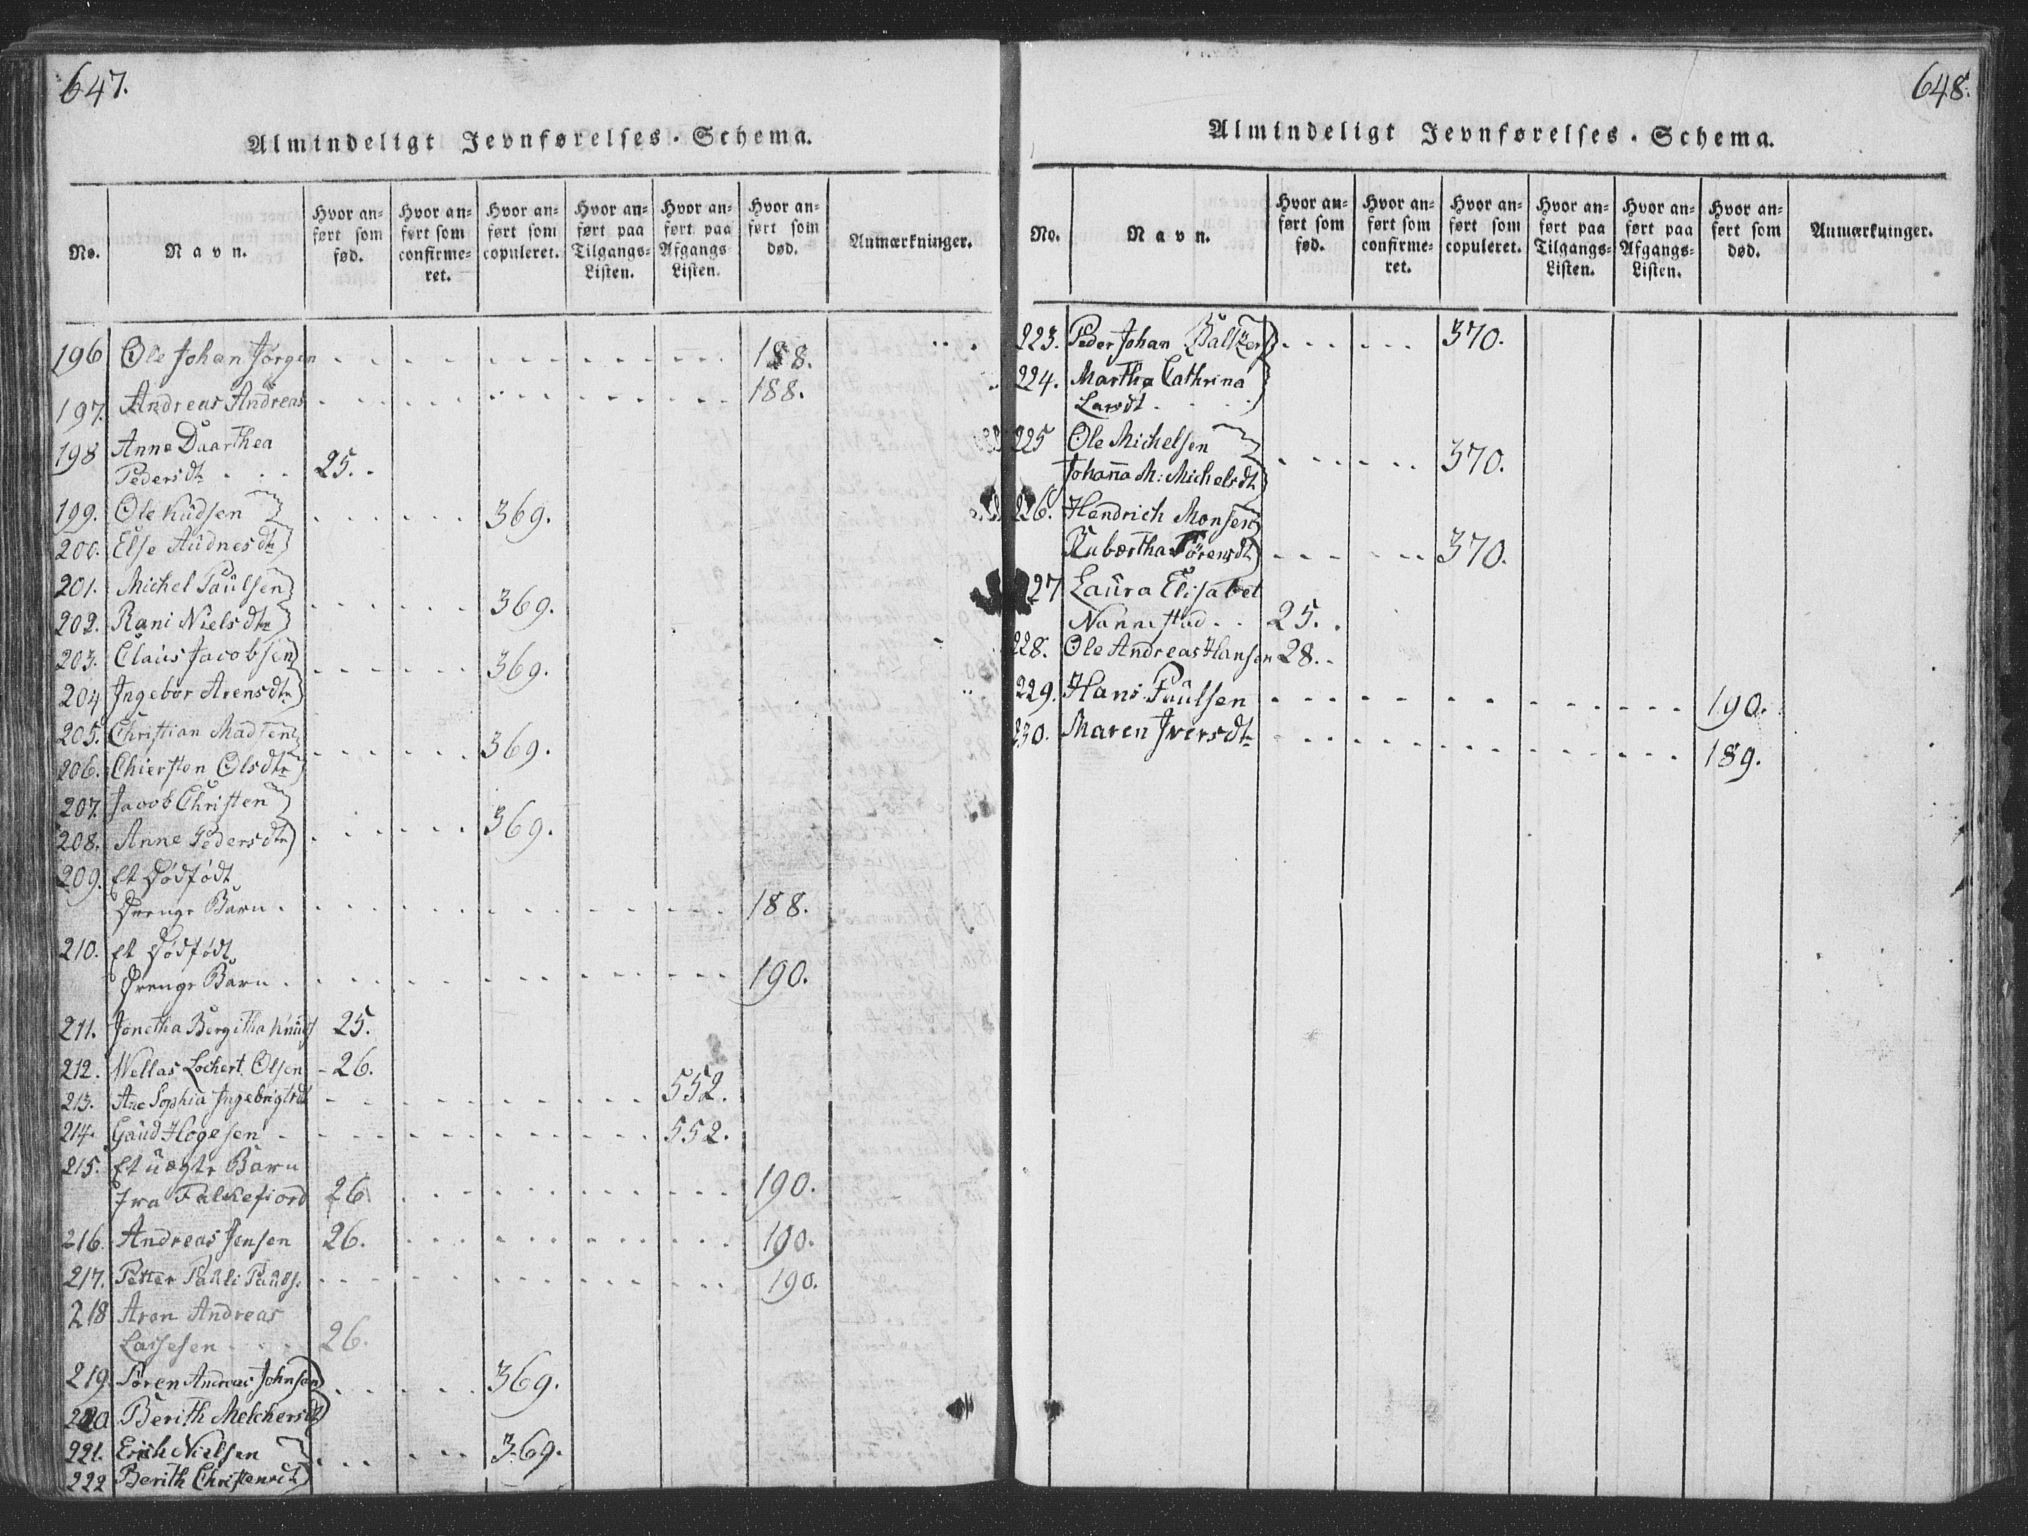 647.
Almindeligt Jevnførelses-Schema.
No. Navn. Hvor anført som fød. Hvor anført som confirmeret. Hvor anført som copuleret. Hvor anført paa Tilgangs-Listen. Hvor anført paa Afgangs-Listen. Hvor anført som død. Anmærkninger.
196 Ole Johan Jörgen 188.
197. Andreas Andreas 188.
198 Anne Daarthea
Pedersdt 25.
199. Ole Kudsen 369.
200. Else Audnesdtr
201. Michel Paulsen 369.
202. Rani Nielsdtr
203. Claus Jacobsen 369.
204 Ingebor Arensdtr
205. Christian Madsen 369.
206. Chiersten Olsdtr
207. Jacob Christen 369.
208. Anne Pedersdtr
209. Et Dødfødt
Drenge Barn 188.
210. Et Dødfødt
Drenge Barn 190.
211. Jonetha Bergitha Knuds 25.
212. Nellas Lockert Olsen 26.
213. Ane Sophia Ingebrigtsdt 552.
214. Gaud Hogesen 552.
215. Et uægte Barn
Fra Falkefiord 26 190.
216. Andreas Jensen 26. 190.
217. Petter Pauli Pauls. 190.
218 Aron Andreas
Lassesen 26.
219. Sören Andreas Johnsen 369.
220 Berith Melchersdt
221. Erich Nielsen 369.
222 Berith Christensdt
648.
Almindeligt Jevnførelses-Schema.
No. Navn. Hvor anført som fød. Hvor anført som confirmeret. Hvor anført som copuleret. Hvor anført paa Tilgangs-Listen. Hvor anført paa Afgangs-Listen. Hvor anført som død. Anmærkninger.
223. Peder Johan Balkzer 370.
224. Martha Cathrina
Larsdt
225 Ole Michelsen
Johanna M: Michelsdt 370.
226. Hendrich Monsen
Rubertha Sörensdt 370.
27 Laura Elisabet
Nannestad 25.
228. Ole Andreas Hansen 28.
229. Hans Paulsen 190.
230. Maren Iversdt 189.